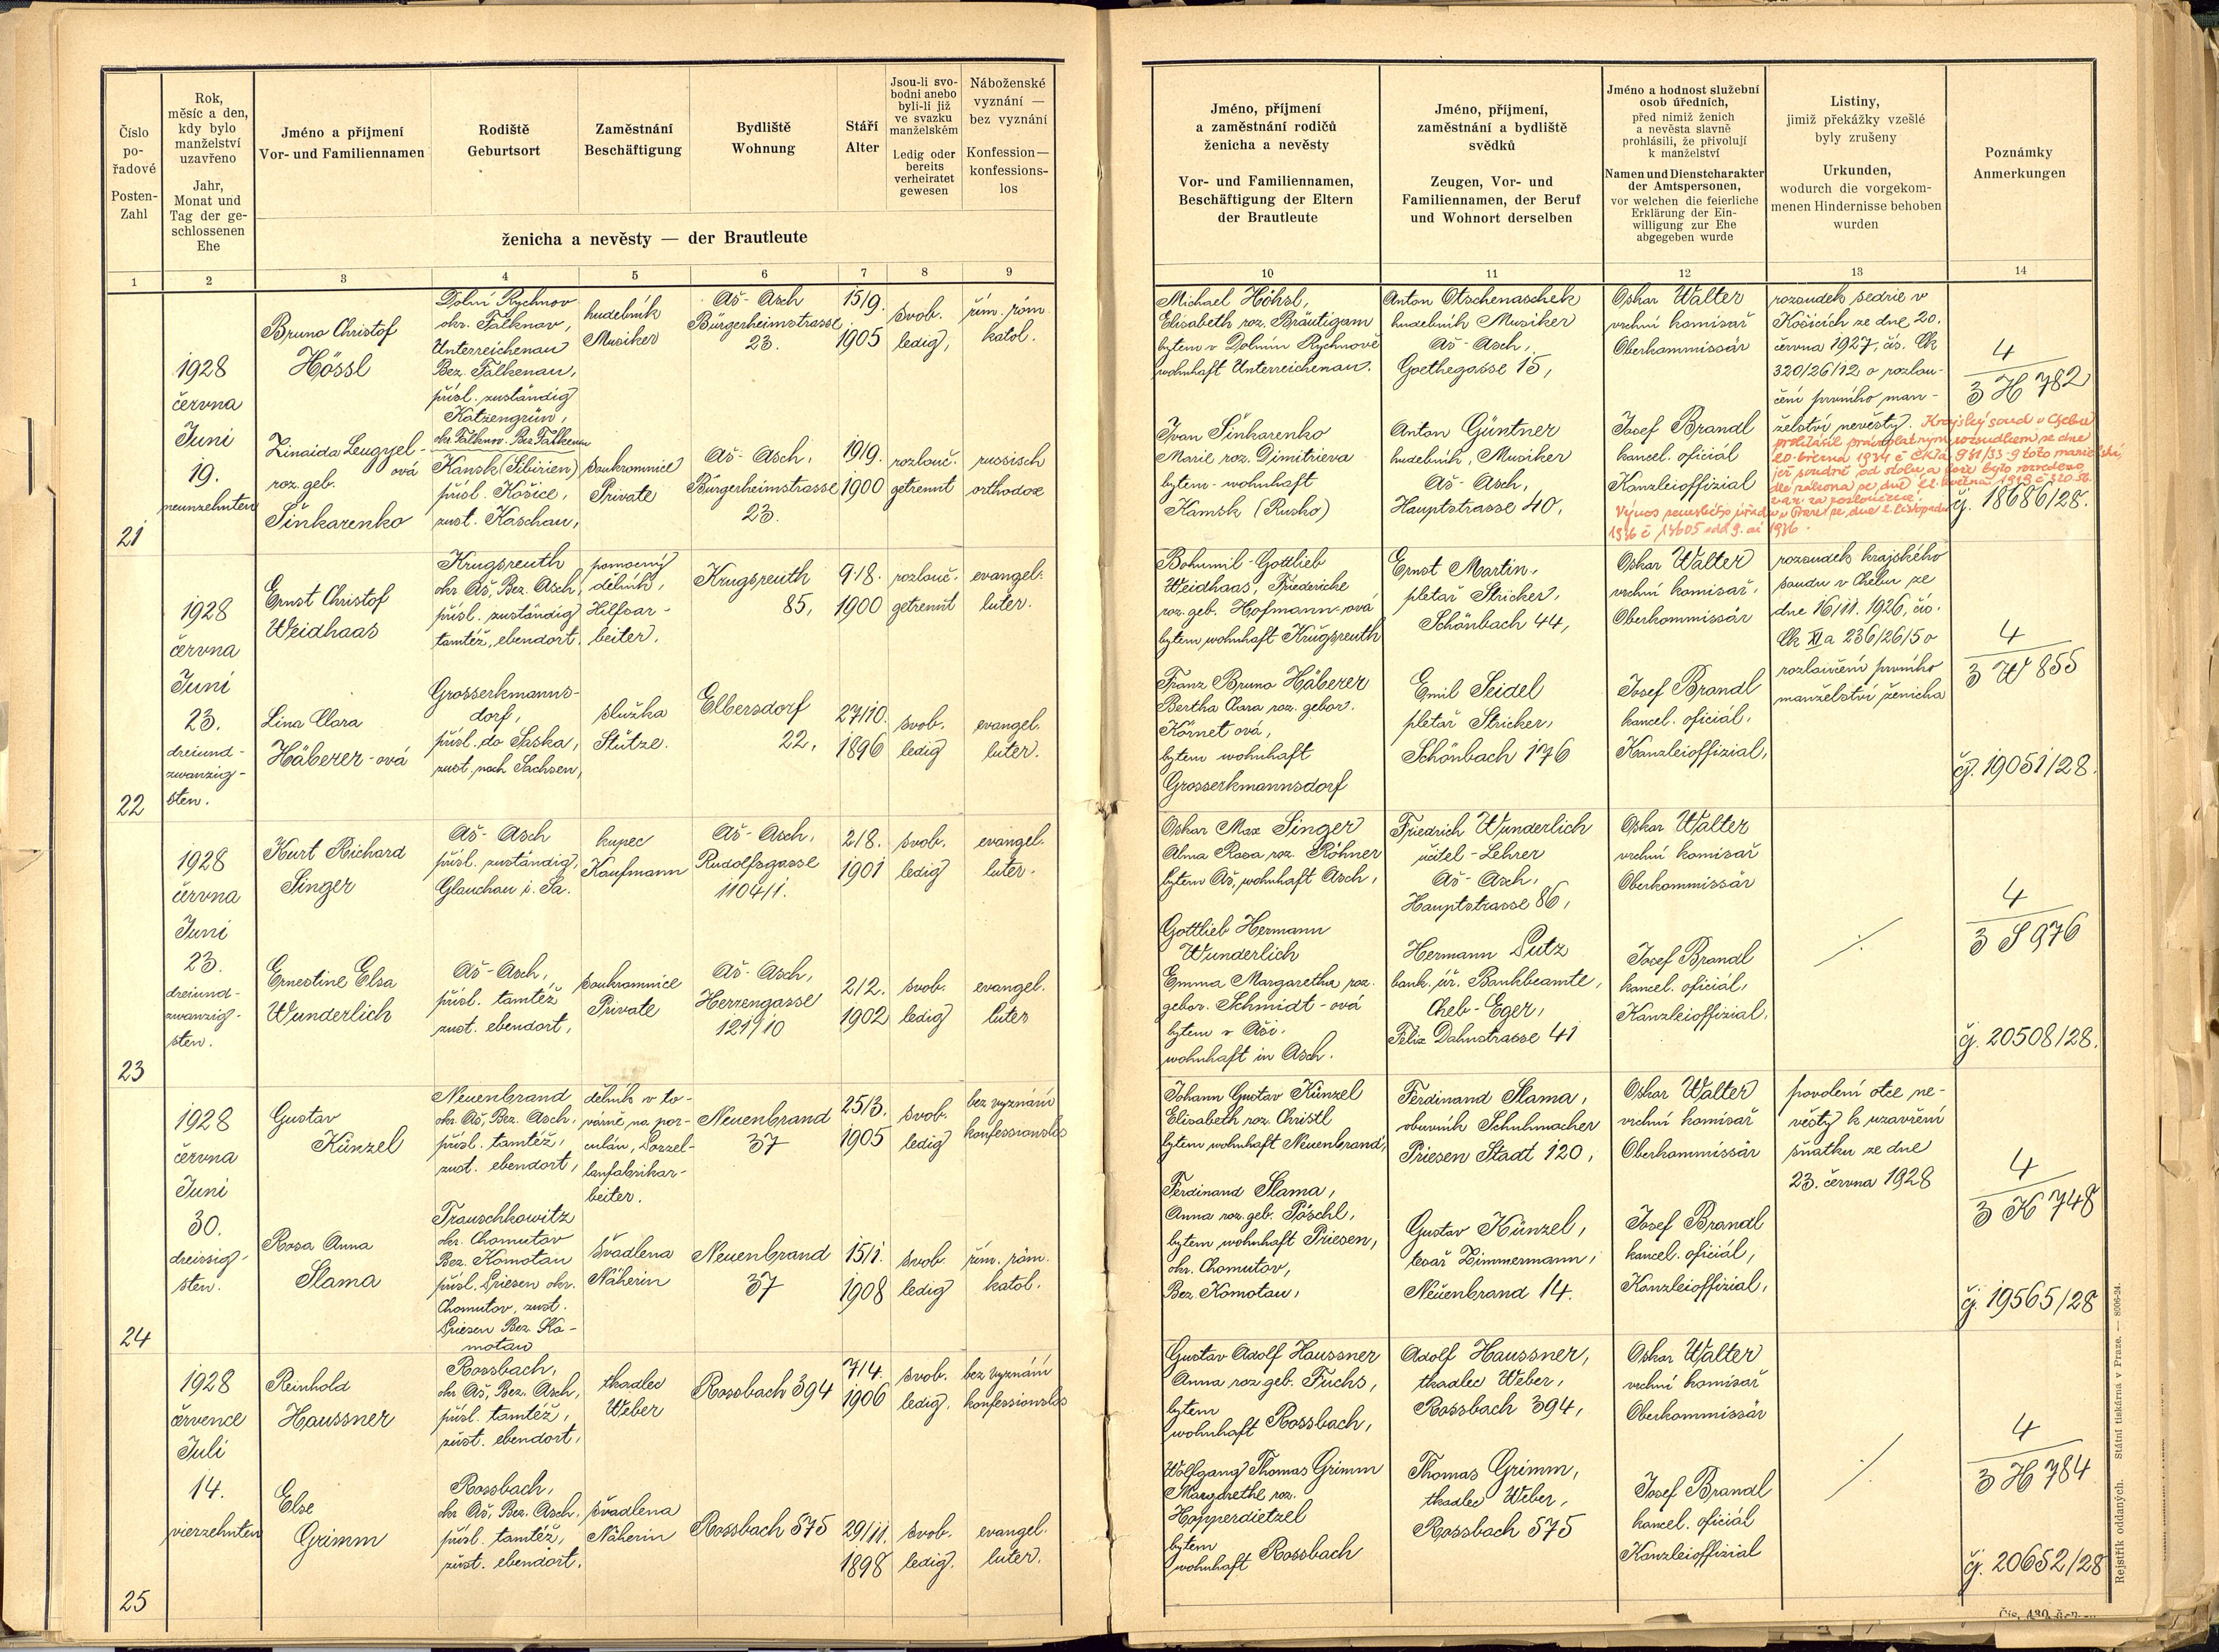 Číslo
po-
řadové
Posten-
Zahl
Rok,
měsíc a den,
kdy bylo
manželství
uzavřeno
Jahr,
Monat und
Tag der ge-
schlossenen
Ehe
Jméno a příjmení
Vor- und Familiennamen
Rodiště
Geburtsort
Zaměstnání
Beschäftigung
Bydliště
Wohnung
Stáří
Alter
Jsou-li svo-
bodni anebo
byli-li již
ve svazku
manželském
Ledig oder
bereits
verheiratet
gewesen
Náboženské
vyznání —
bez vyznání
Konfession —
konfessions-
los
ženicha a nevěsty — der Brautleute
Jméno, příjmení
a zaměstnání rodičů
ženicha a nevěsty
Vor- und Familiennamen,
Beschäftigung der Eltern
der Brautleute
Jméno, příjmení,
zaměstnání a bydliště
svědků
Zeugen, Vor- und
Familiennamen, der Beruf
und Wohnort derselben
Jméno a hodnost služební
osob úředních,
před nimiž ženich
a nevěsta slavně
prohlásili, že přivolují
k manželství
Namen und Dienstcharakter
der Amtspersonen,
vor welchen die feierliche
Erklärung der Ein-
willigung zur Ehe
abgegeben wurde
Listiny,
jimiž překážky vzešlé
byly zrušeny
Urkunden,
wodurch die vorgekom-
menen Hindernisse behoben
wurden
Poznámky
Anmerkungen
1 2 3 4 5 6 7 8 9 10 11 12 13 14
21
1928
června
Juni
19.
neunzehnten
Bruno Christof
Hössl
Dolní Rychnov
okr. Falknov,
Unterreichenau
Bez. Falkenau,
přísl. zuständig
Katzengrün,
okr. Falknov. Bez Falkenau
hudebník
Musiker
Aš - Asch
Bürgerheimstrasse
23.
15/9.
1905
svob.
ledig,
řím. řám.
katol.
Zinaida Lengyel-
ová
roz. geb.
Šinkarenko
Kansk (Sibirien)
přísl. Košice,
zust. Kaschau,
soukromnice
Private
Aš - Asch,
Bürgerheimstrasse
23.
19/9.
1900
rozlouč.
getrennt
russisch
orthodox
Michael Höhsl,
Elisabeth roz. Bräutigam
bytem v Dolním Rychnově
wohnhaft Unterreichenau.
Ivan Šinkarenko
Marie roz. Dimitrieva
bytem - wohnhaft
Kamsk (Rusko)
Anton Otschenaschek
hudebník Musiker
Aš - Asch,
Goethegasse 15,
Anton Güntner
hudebník, Musiker
Aš - Asch,
Hauptstrasse 40,
Oskar Walter
vrchní komisař
Oberkommissär
Josef Brandl
kancel. oficiál
Kanzleioffizial
rozsudek sedrie v
Košicích ze dne 20.
června 1927, čís. Ck
320/26/12 o rozlou-
čení prvního man-
želství nevěsty. Krajský soud v Chebu
prohlásil pravoplatným rozsudkem ze dne
20. března 1934 č CkIa 981/33-9 toto manželství
dle zákona ze dne 22. května 1919 č 320 Sb.
z. a n. za rozloučené.
Výnos zemského úřadu v Praze ze dne 2. listopadu
1936
4
3 H 782
čj. 18686/28.
22
1928
června
Juni
23.
dreiund-
zwanzig-
sten.
Ernst Christof
Weidhaas
Krugsreuth
okr. Aš, Bez. Asch,
přísl. zuständig
tamtéž, ebendort.
pomocný
dělník,
Hilfsar-
beiter.
Krugsreuth
85,
9/8.
1900
rozlouč.
getrennt
evangel.
luter.
Lina Clara
Häberer - ová
Grosserkmanns-
dorf,
přísl. do Saska,
zust. nach Sachsen,
služka
Stütze.
Elbersdorf
22,
27/10.
1896
svob.
ledig
evangel.
luter.
Bohumil - Gottlieb
Weidhaas, Friedericke
roz. geb. Hofmann-ová
bytem wohnhaft Krugsreuth
Franz Bruno Häberer
Bertha Clara roz. gebor.
Körnet ová,
bytem wohnhaft
Grosserkmannsdorf
Ernst Martin,
pletař Stricker,
Schönbach 44,
Emil Seidel
pletař Stricker,
Schönbach 176
Oskar Walter
vrchní komisař,
Oberkommissär
Josef Brandl
kancel. oficiál,
Kanzleioffizial,
rozsudek krajského
soudu v Chebu ze
dne 16/11. 1926, čís.
Ck XI a 236/26/5 o
rozloučení prvního
manželství ženicha
4
3 W 855
čj. 19051/28.
23
1928
června
Juni
23.
dreiund-
zwanzig-
sten.
Kurt Richard
Singer
Aš - Asch
přísl. zuständig,
Glauchau i. Sa.
kupec
Kaufmann
Aš - Asch,
Rudolfsgasse
1104/1.
2/8.
1901
svob.
ledig
evangel.
luter.
Ernestine Elsa
Wunderlich
Aš - Asch,
přísl. tamtéž
zust. ebendort,
soukromnice
Private
Aš - Asch,
Herrengasse
121/10
2/2.
1902
svob.
ledig
evangel.
luter
Oskar Max Singer
Alma Rosa roz. Röhner
bytem Aš, wohnhaft Asch,
Gottlieb Hermann
Wunderlich
Emma Margaretha roz.
gebor. Schmidt - ová
bytem v Aši,
wohnhaft in Asch.
Friedrich Wunderlich
učitel - Lehrer
Aš - Asch,
Hauptstrasse 86,
Hermann Lutz
bank. úř. Bankbeamte,
Cheb - Eger,
Felix Dahnstrasse 41
Oskar Walter
vrchní komisař
Oberkommissär
Josef Brandl
kancel. oficiál,
Kanzleioffizial,
4
3 S 976
čj. 20508/28.
24
1928
června
Juni
30.
dreissig-
sten.
Gustav
Künzel
Neuenbrand
okr. Aš, Bez. Asch,
přísl. tamtéž,
zust. ebendort,
dělník v to-
várně na por-
culán, Porzel-
lanfabrikar-
beiter.
Neuenbrand
37
25/3.
1905
svob.
ledig
bez vyznání
konfessionslos
Rosa Anna
Slama
Trauschkowitz
okr. Chomutov
Bez. Komotau
přísl. Priesen okr.
Chomutov, zust.
Priesen Bez. Ko-
motau
švadlena
Näherin
Neuenbrand
37
15/1.
1908
svob.
ledig
řím. řám.
katol.
Johann Gustav Künzel
Elisabeth roz. Christl
bytem wohnhaft Neuenbrand,
Ferdinand Slama,
Anna roz. geb. Pöschl,
bytem wohnhaft Priesen,
okr. Chomutov,
Bez. Komotau,
Ferdinand Slama,
obuvník Schuhmacher
Priesen Stadt 120,
Gustav Künzel,
tesař Zimmermann,
Neuenbrand 14.
Oskar Walter
vrchní komisař
Oberkommissär
Josef Brandl
kancel. oficiál,
Kanzleioffizial,
povolení otce ne-
věsty k uzavření
sňatku ze dne
23. června 1928
4
3 K 748
čj. 19565/28
25
1928
července
Juli
14.
vierzehnten
Reinhold
Haussner
Rossbach,
okr. Aš, Bez. Asch,
přísl. tamtéž,
zust. ebendort,
tkadlec
Weber
Rossbach 394
7/4.
1906
svob.
ledig.
bez vyznání
konfessionslos
Else
Grimm
Rossbach,
okr. Aš, Bez. Asch,
přísl. tamtéž,
zust. ebendort.
švadlena
Näherin
Rossbach 575
29/11.
1898
svob.
ledig.
evangel.
luter.
Gustav Adolf Haussner
Anna roz. geb. Fuchs,
bytem
wohnhaft Rossbach,
Wolfgang Thomas Grimm
Margarethe roz.
Hopperdietzel
bytem
wohnhaft Rossbach
Adolf Haussner,
tkadlec Weber,
Rossbach 394,
Thomas Grimm,
tkadlec Weber,
Rossbach 575
Oskar Walter
vrchní komisař
Oberkommissär
Josef Brandl
kancel. oficiál
Kanzleioffizial
4
3 H 784
čj. 20652/28
Rejstřík oddaných. Státní tiskárna v Praze. — 8906-24.